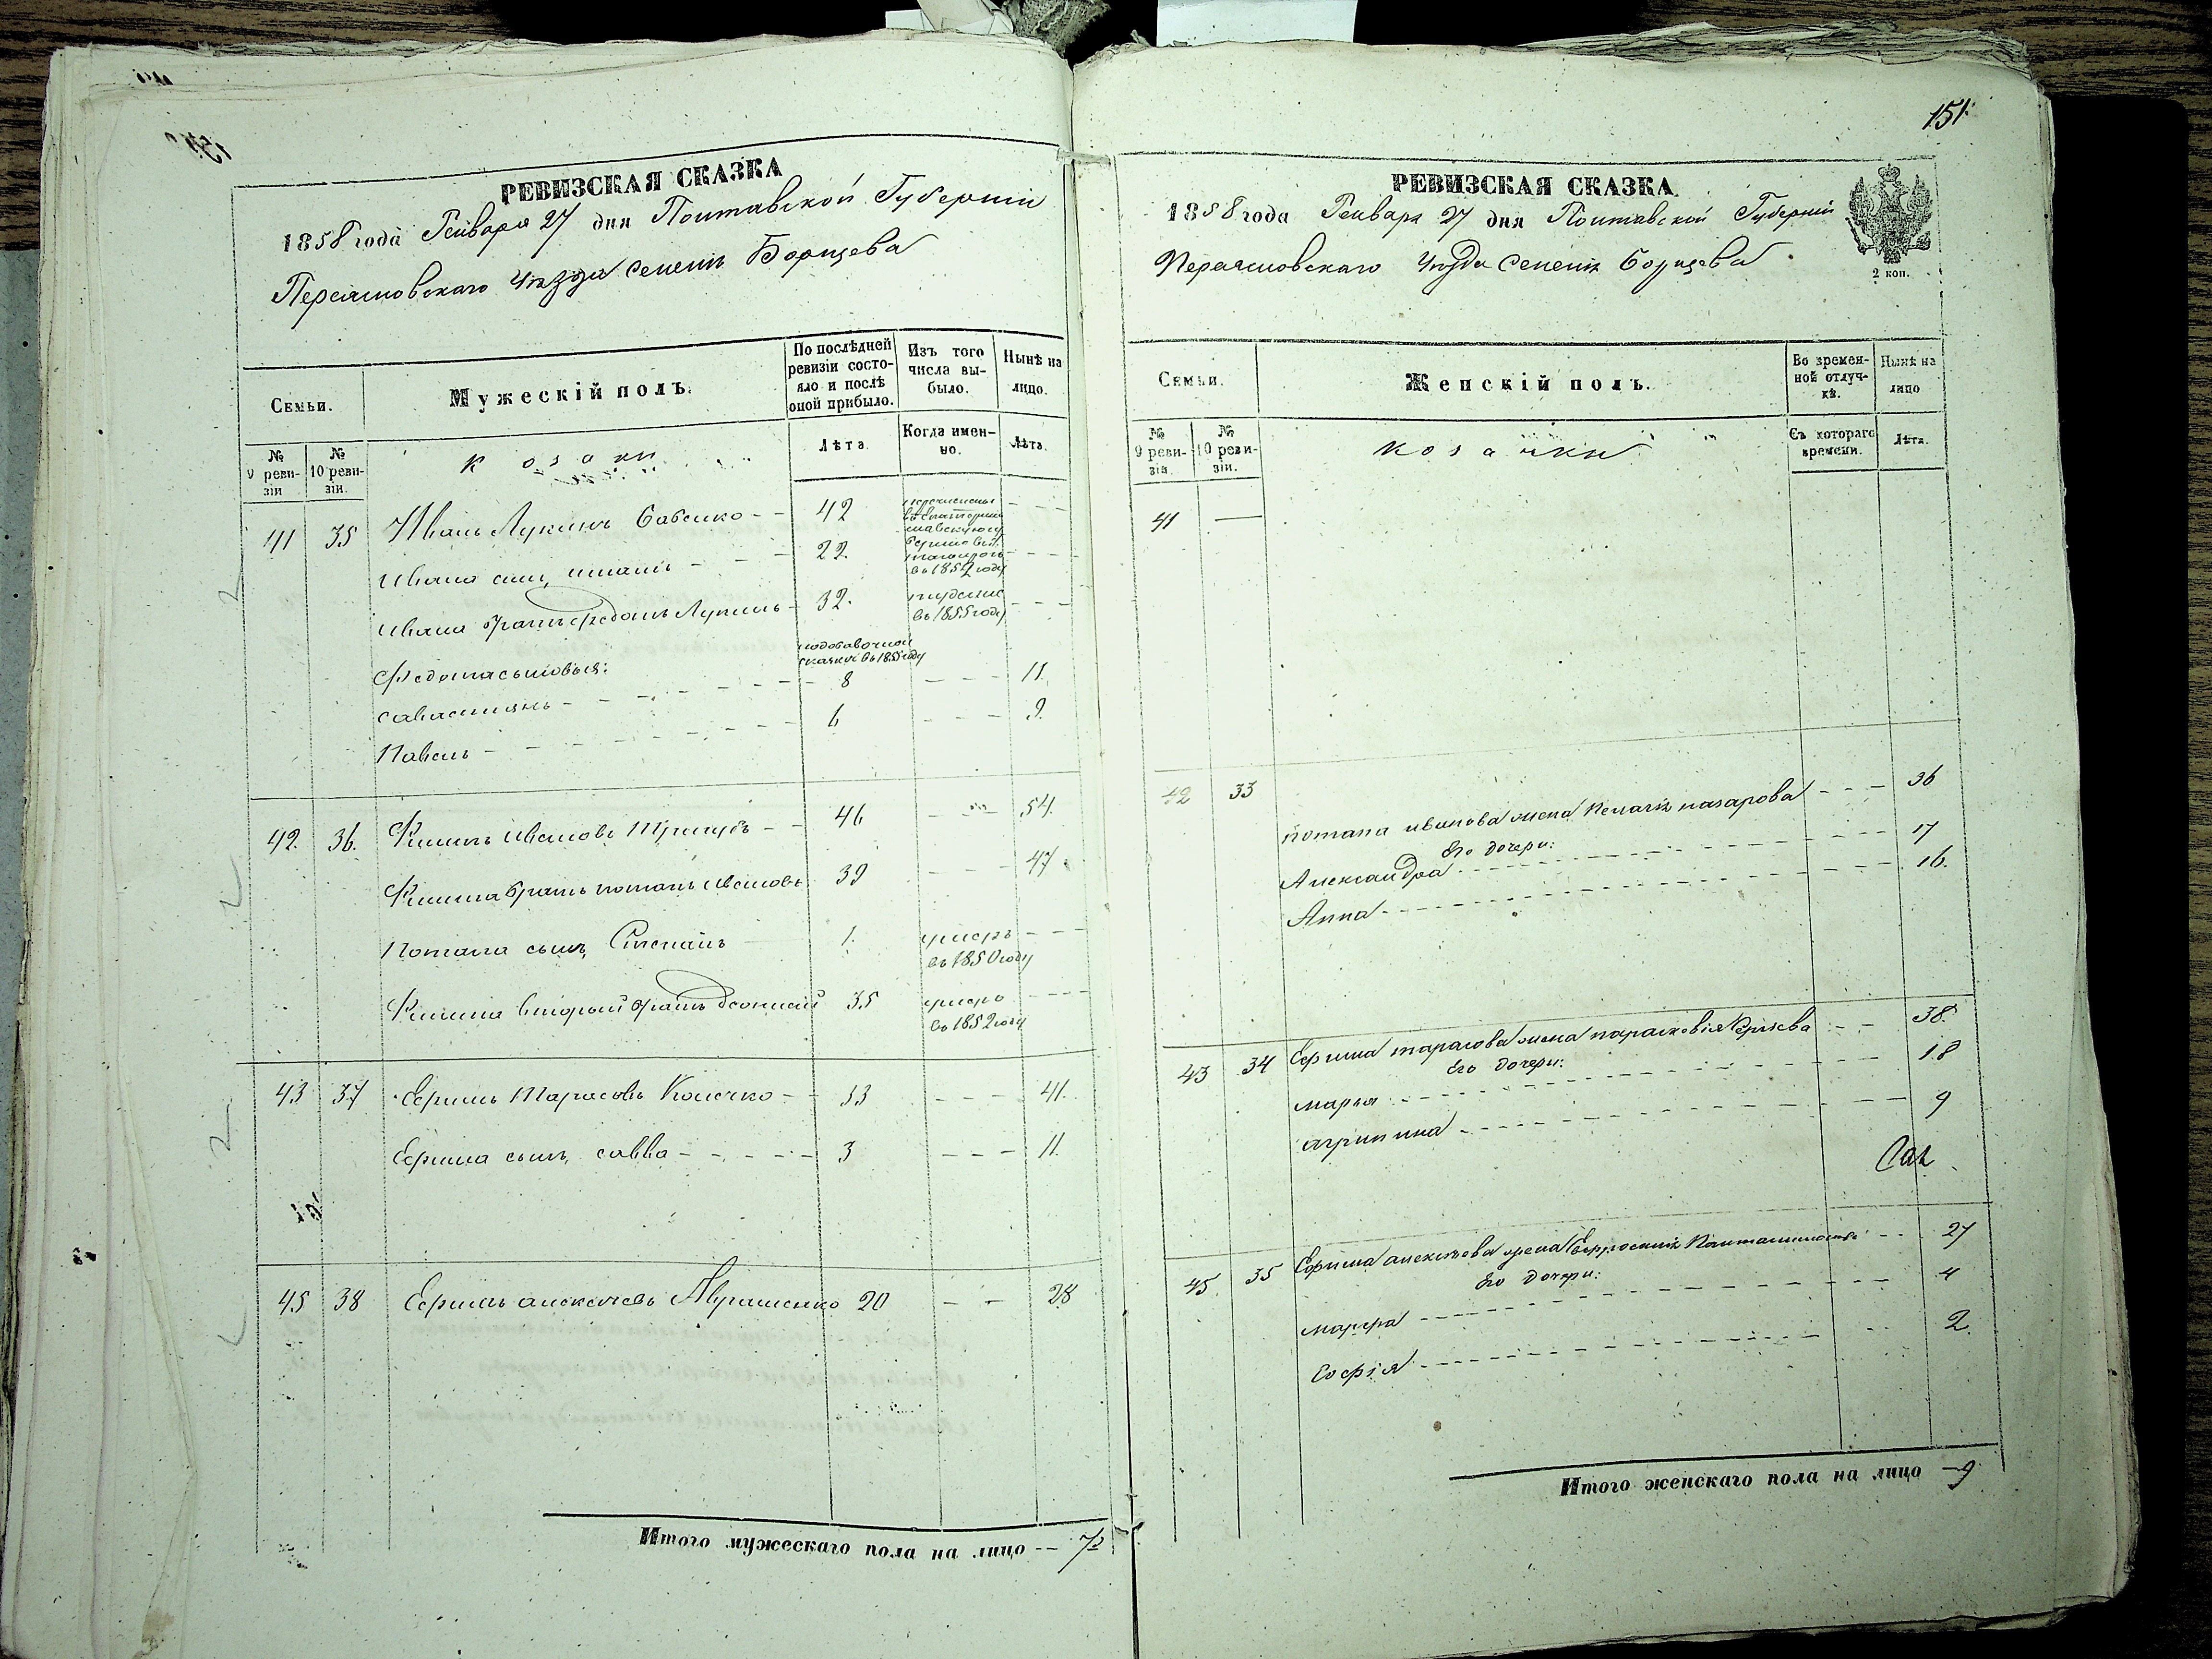 151.
РЕВИЗСКАЯ СКАЗКА
1858 года Генваря 27 дня Полтавской Губернiи
Переясловскаго уѣзда селенiя Борщева
Семьи.
Мужескiй полъ.
По послѣдней ревизiи состояло и послѣ оной прибыло.
Изъ того числа выбыло.
Нынѣ на лицо.
№ 9 ревизiи
№ 10 ревизiи.
козаки
Лѣта
Когда именно.
Лѣта.
41 35 Иванъ Лукинъ Бабенко 42
Ивана сынъ 22.
въ 1852 году
Ивана братъ Федотъ Лукинъ 32.
въ 1855 году
Федота сыновья:
сказкѣ въ 1855 году
Савастiянъ 8 11.
Павелъ 6 9.
42. 36. Филипъ Ивановъ 46 54.
Филипа братъ Потапъ Ивановъ 39 47.
Потапа сынъ Степанъ 1. умеръ
въ 1850 году
Филипа вторый братъ 35 умеръ
въ 1852 году
43 37 Ефимъ Тарасовъ 33 41.
Ефима сынъ Савва 3 11.
45 38 Ефимъ Алексѣевъ Авраменко 20 28
Итого мужескаго пола на лицо -- 7
РЕВИЗСКАЯ СКАЗКА.
1858 года Генваря 27 дня Полтавской Губернiи
Переясловскаго уѣзда селенiя Борщева
2 коп.
Семьи.
Женскiй полъ.
Во временной отлучкѣ.
Нынѣ на лицо
№ 9 ревизiи.
№ 10 ревизiи.
козачки
Съ котораго времени.
Лѣта.
41 —
42 33 Потапа Иванова жена Пелагiя Назарова 36
Его дочери:
Александра 17
Анна 16.
43 34 Ефима Тарасова жена Парасковiя 38.
Его дочери:
Марья 18
Агрипина 9
45 35 Ефима Алексѣева жена Ефросинiя 27
Его дочери:
Марфа 4
Софiя 2.
Итого женскаго пола на лицо — 9